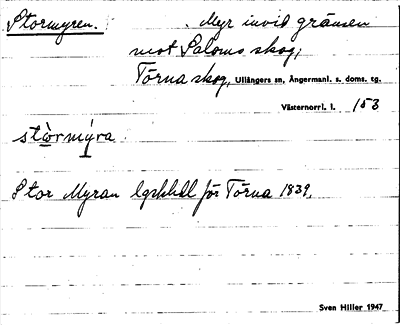 Stormyren. Myr invid gränsen
mot Saloms skog,
Törna skog, Ullångers sn, Ångermanl. s. doms. tg.
Västernorrl. l. 153
stòrmýra
Stor Myran lgskhdl för Törna 1839,
Sven Hiller 1947